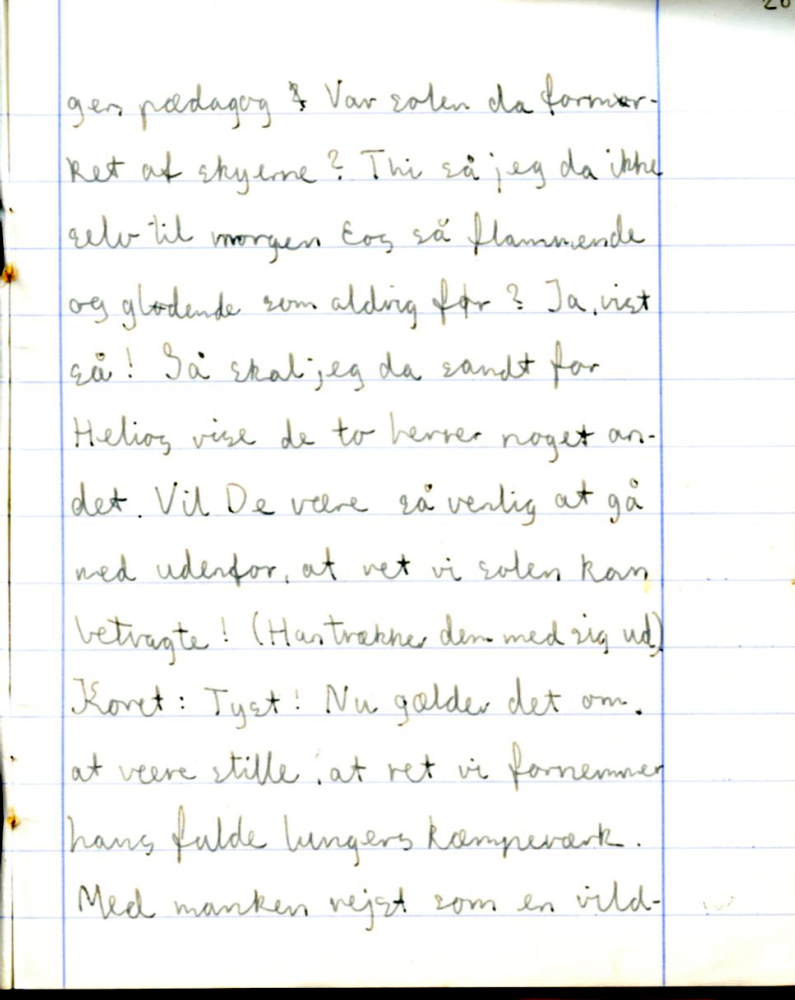 20
gens pædagog? Var solen da formør-
ket af skyerne? Thi så jeg da ikke
selv til morgen Eos så flammende
og glødende som aldrig før? Ja, vist
så! Så skal jeg da sandt for
Helios vise de to herrer noget an-
det. Vil De være så venlig at gå
med udenfor, at ret vi solen kan
betragte! (Han trækker dem med sig ud)
Koret: Tyst! Nu gælder det om,
at være stille, at ret vi fornemmer
hans fulde lungers kæmpeværk.
Med manken rejst som en vild-